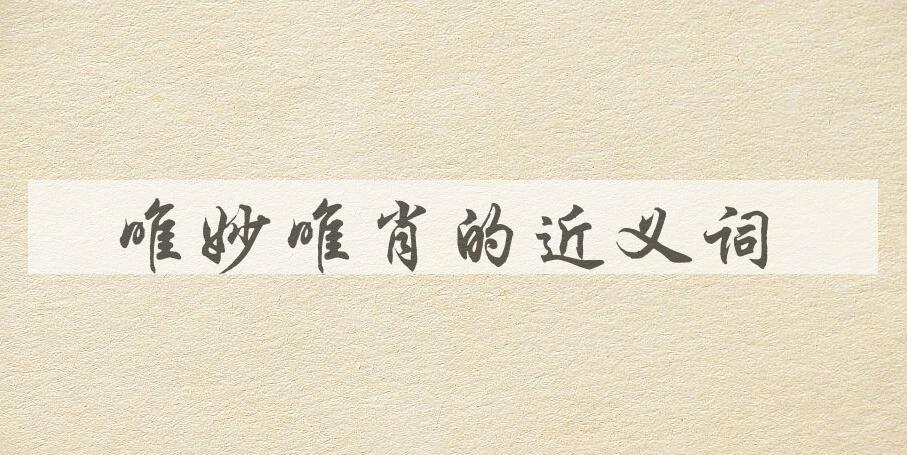 唯妙唯肖的近义词